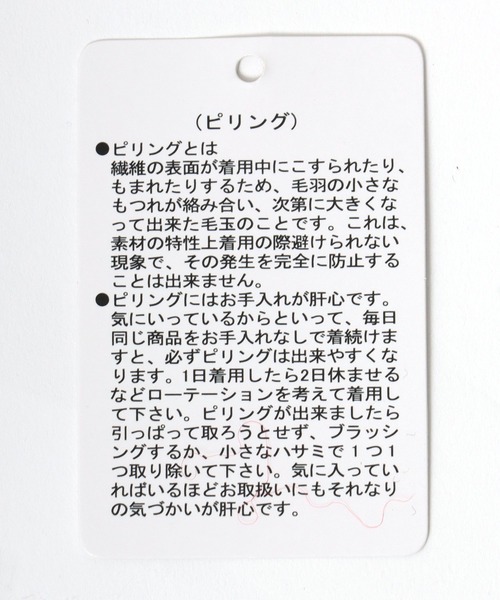 (ピリング)
●ピリングとは
繊維の表面が着用中にこすられたり、
もまれたりするため、毛羽の小さな
もつれが絡み合い、次第に大きくな
って出来た毛玉のことです。これは、
素材の特性上着用の際避けられない
現象で、その発生を完全に防止する
ことは出来ません。
●ピリングにはお手入れが肝心です。
気にいっているからといって、毎日
同じ商品をお手入れなしで着続けま
すと、必ずピリングは出来やすくな
ります。1日着用したら2日休ませる
などローテーションを考えて着用し
て下さい。ピリングが出来ましたら
引っぱって取ろうとせず、ブラッシ
ングするか、小さなハサミで1つ1
つ取り除いて下さい。気に入ってい
ればいるほどお取扱いにもそれなり
の気づかいが肝心です。